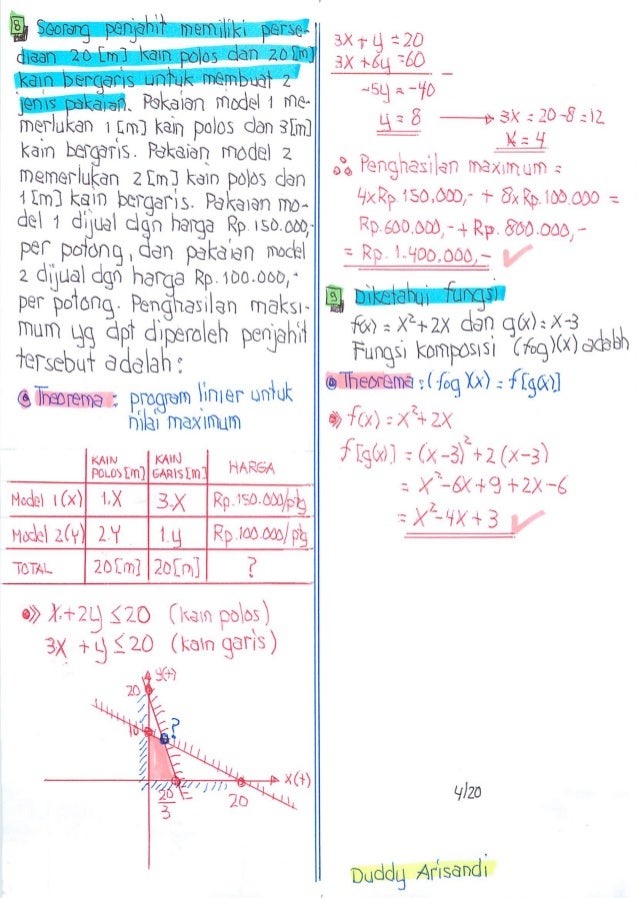 8 Seorang penjahit memiliki perse-
diaan 20 [m] kain polos dan 20 [m]
kain bergaris untuk membuat 2
jenis pakaian. Pakaian model 1 me-
merlukan 1 [m] kain polos dan 3[m]
kain bergaris. Pakaian model 2
memerlukan 2 [m] kain polos dan
1 [m] kain bergaris. Pakaian mo-
del 1 dijual dgn harga Rp. 150.000,-
per potong, dan pakaian model
2 dijual dgn harga Rp. 100.000,-
per potong. Penghasilan maksi-
mum yg dpt diperoleh penjahit
tersebut adalah :
Theorema : program linier untuk
nilai maximum
KAIN POLOS [m] KAIN GARIS [m] HARGA
Model 1 (x) 1.X 3.X Rp. 150.000/ptg
Model 2 (y) 2.Y 1.y Rp. 100.000/ptg
TOTAL 20 [m] 20 [m] ?
X + 2y ≤ 20 (kain polos)
3X + y ≤ 20 (kain garis)
y(+)
20
10
?
X(+)
20/3
20
3X + y = 20
3X + 6y = 60
-5y = -40
y = 8 → 3X = 20 - 8 = 12
X = 4
∴ Penghasilan maximum =
4 x Rp. 150.000,- + 8 x Rp. 100.000 =
Rp. 600.000,- + Rp. 800.000,-
= Rp. 1.400.000,- ✓
9 Diketahui fungsi
f(x) = X²+2X dan g(x) = X-3
Fungsi komposisi (fog)(x) adalah
Theorema : (fog)(x) = f[g(x)]
f(x) = X² + 2X
f[g(x)] = (X-3)² + 2(X-3)
= X² - 6X + 9 + 2X - 6
= X² - 4X + 3 ✓
4/20
Duddy Arisandi